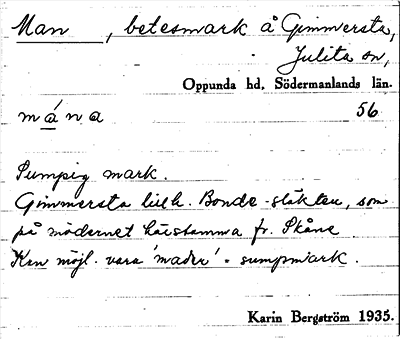 Man, betesmark å Gimmersta,
Julita sn,
Oppunda hd, Södermanlands län.
mána 56
Sumpig mark.
Gimmersta tillh. Bonde-släkten, som
på mödernet härstamma fr. Skåne
Kan möjl. vara 'mader' = sumpmark.
Karin Bergström 1935.